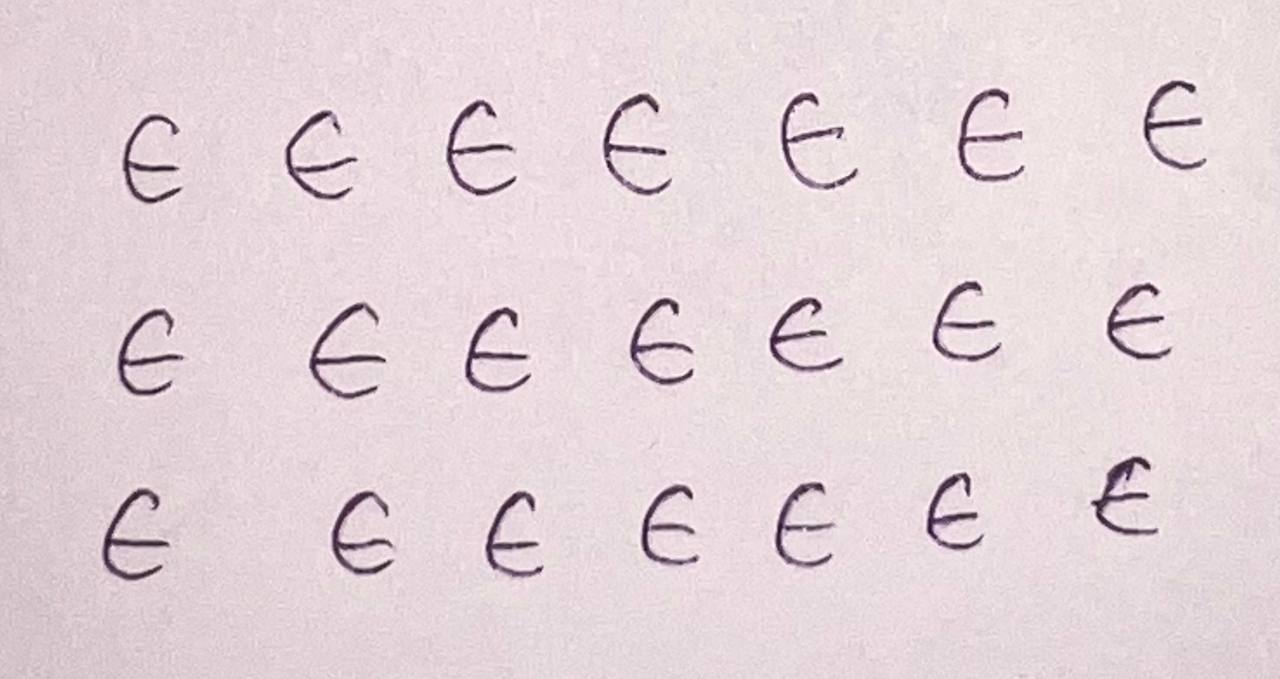 ∈ ∈ ∈ ∈ ∈ ∈ ∈
∈ ∈ ∈ ∈ ∈ ∈ ∈
∈ ∈ ∈ ∈ ∈ ∈ ∈